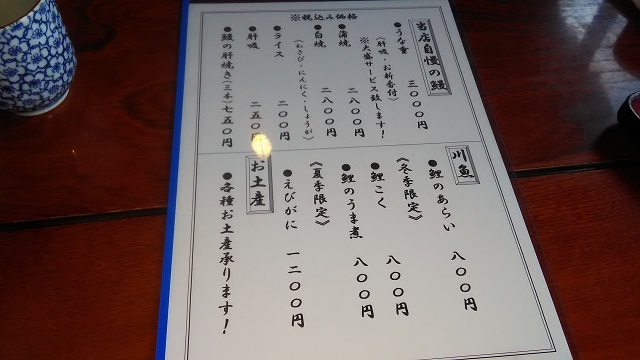 ※税込み価格
当店自慢の鰻
●うな重 三〇〇〇円
(肝吸・お新香付)
※大盛サービス致します!
●蒲焼 二八〇〇円
●白焼 二八〇〇円
(わさび・にんにく・しょうが)
●ライス 二〇〇円
●肝吸 二五〇円
●鰻の肝焼き(三本)七五〇円
川魚
●鯉のあらい 八〇〇円
《冬季限定》
●鯉こく 八〇〇円
●鯉のうま煮 八〇〇円
《夏季限定》
●えびがに 一二〇〇円
お土産
●各種お土産承ります!